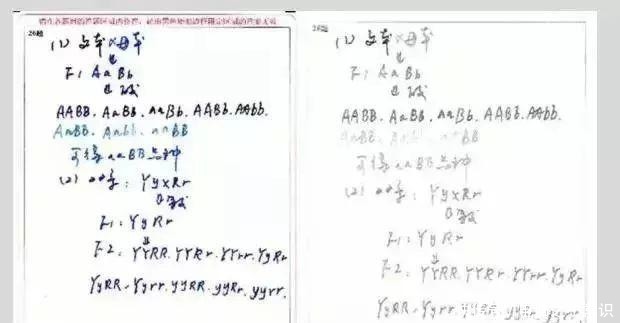 请在各题目的答题区域内作答，超出黑色矩形边框限定区域的答案无效
26题
(1) 父本×母本
↓
F1 AaBb
AABB、AaBB、aaBb、AABb、AAbb、
AaBB、Aabb、aaBB
可得aaBB
(2) YyXRr
F1: YyRr
↓
F2: YYRR、YYRr、YYrr、YyRr
YyRR、Yyrr、yyRR、yyRr、yyrr、
26题
(1) 父本×母本
↓
F1 AaBb
AABB、AaBB、aaBb、AABb、AAbb、
AaBB、Aabb、aaBB
可得aaBB
(2) YyXRr
F1: YyRr
↓
F2: YYRR、YYRr、YYrr、YyRr
YyRR、Yyrr、yyRR、yyRr、yyrr